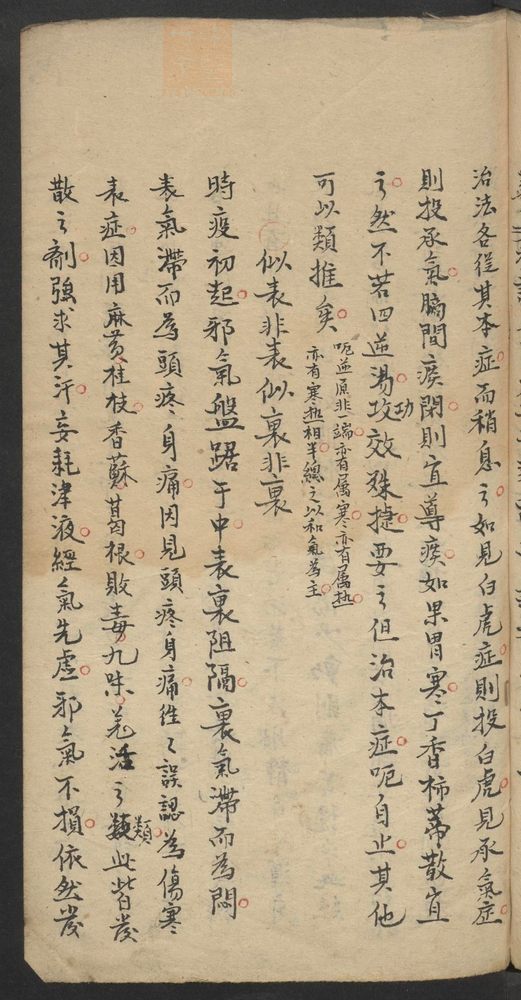 治法各從其本症而稍息之如見白虎症則投白虎見承氣症
則投承氣膈間痰閉則宜導痰如果胃寒丁香柿蒂散宜
之然不若四逆湯功效殊捷要之但治本症呃自止其他
可以類推矣
呃逆原非一端亦有属寒亦有属热
亦有寒热相半總之以和氣為主
似表非表似裏非裏
時疫初起邪氣盤踞于中表裏阻隔裏氣滯而為悶
表氣滯而為頭疼身痛因見頭疼身痛徃々誤認為傷寒
表症因用麻黄桂枝香蘇葛根敗毒九味羌活之類此皆發
散之劑強求其汗妄耗津液經氣先虚邪氣不損依然發